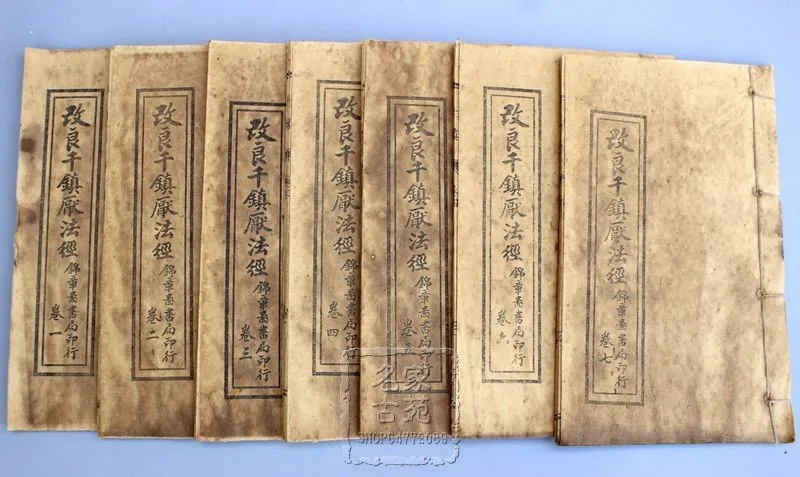 改良千鎮厭法經 錦章啚書局印行 卷一
改良千鎮厭法經 錦章啚書局印行 卷二
改良千鎮厭法經 錦章啚書局印行 卷三
改良千鎮厭法經 錦章啚書局印行 卷四
改良千鎮厭法經 錦章啚書局印行 卷五
改良千鎮厭法經 錦章啚書局印行 卷六
改良千鎮厭法經 錦章啚書局印行 卷七
名家
古苑
SHOP64772069